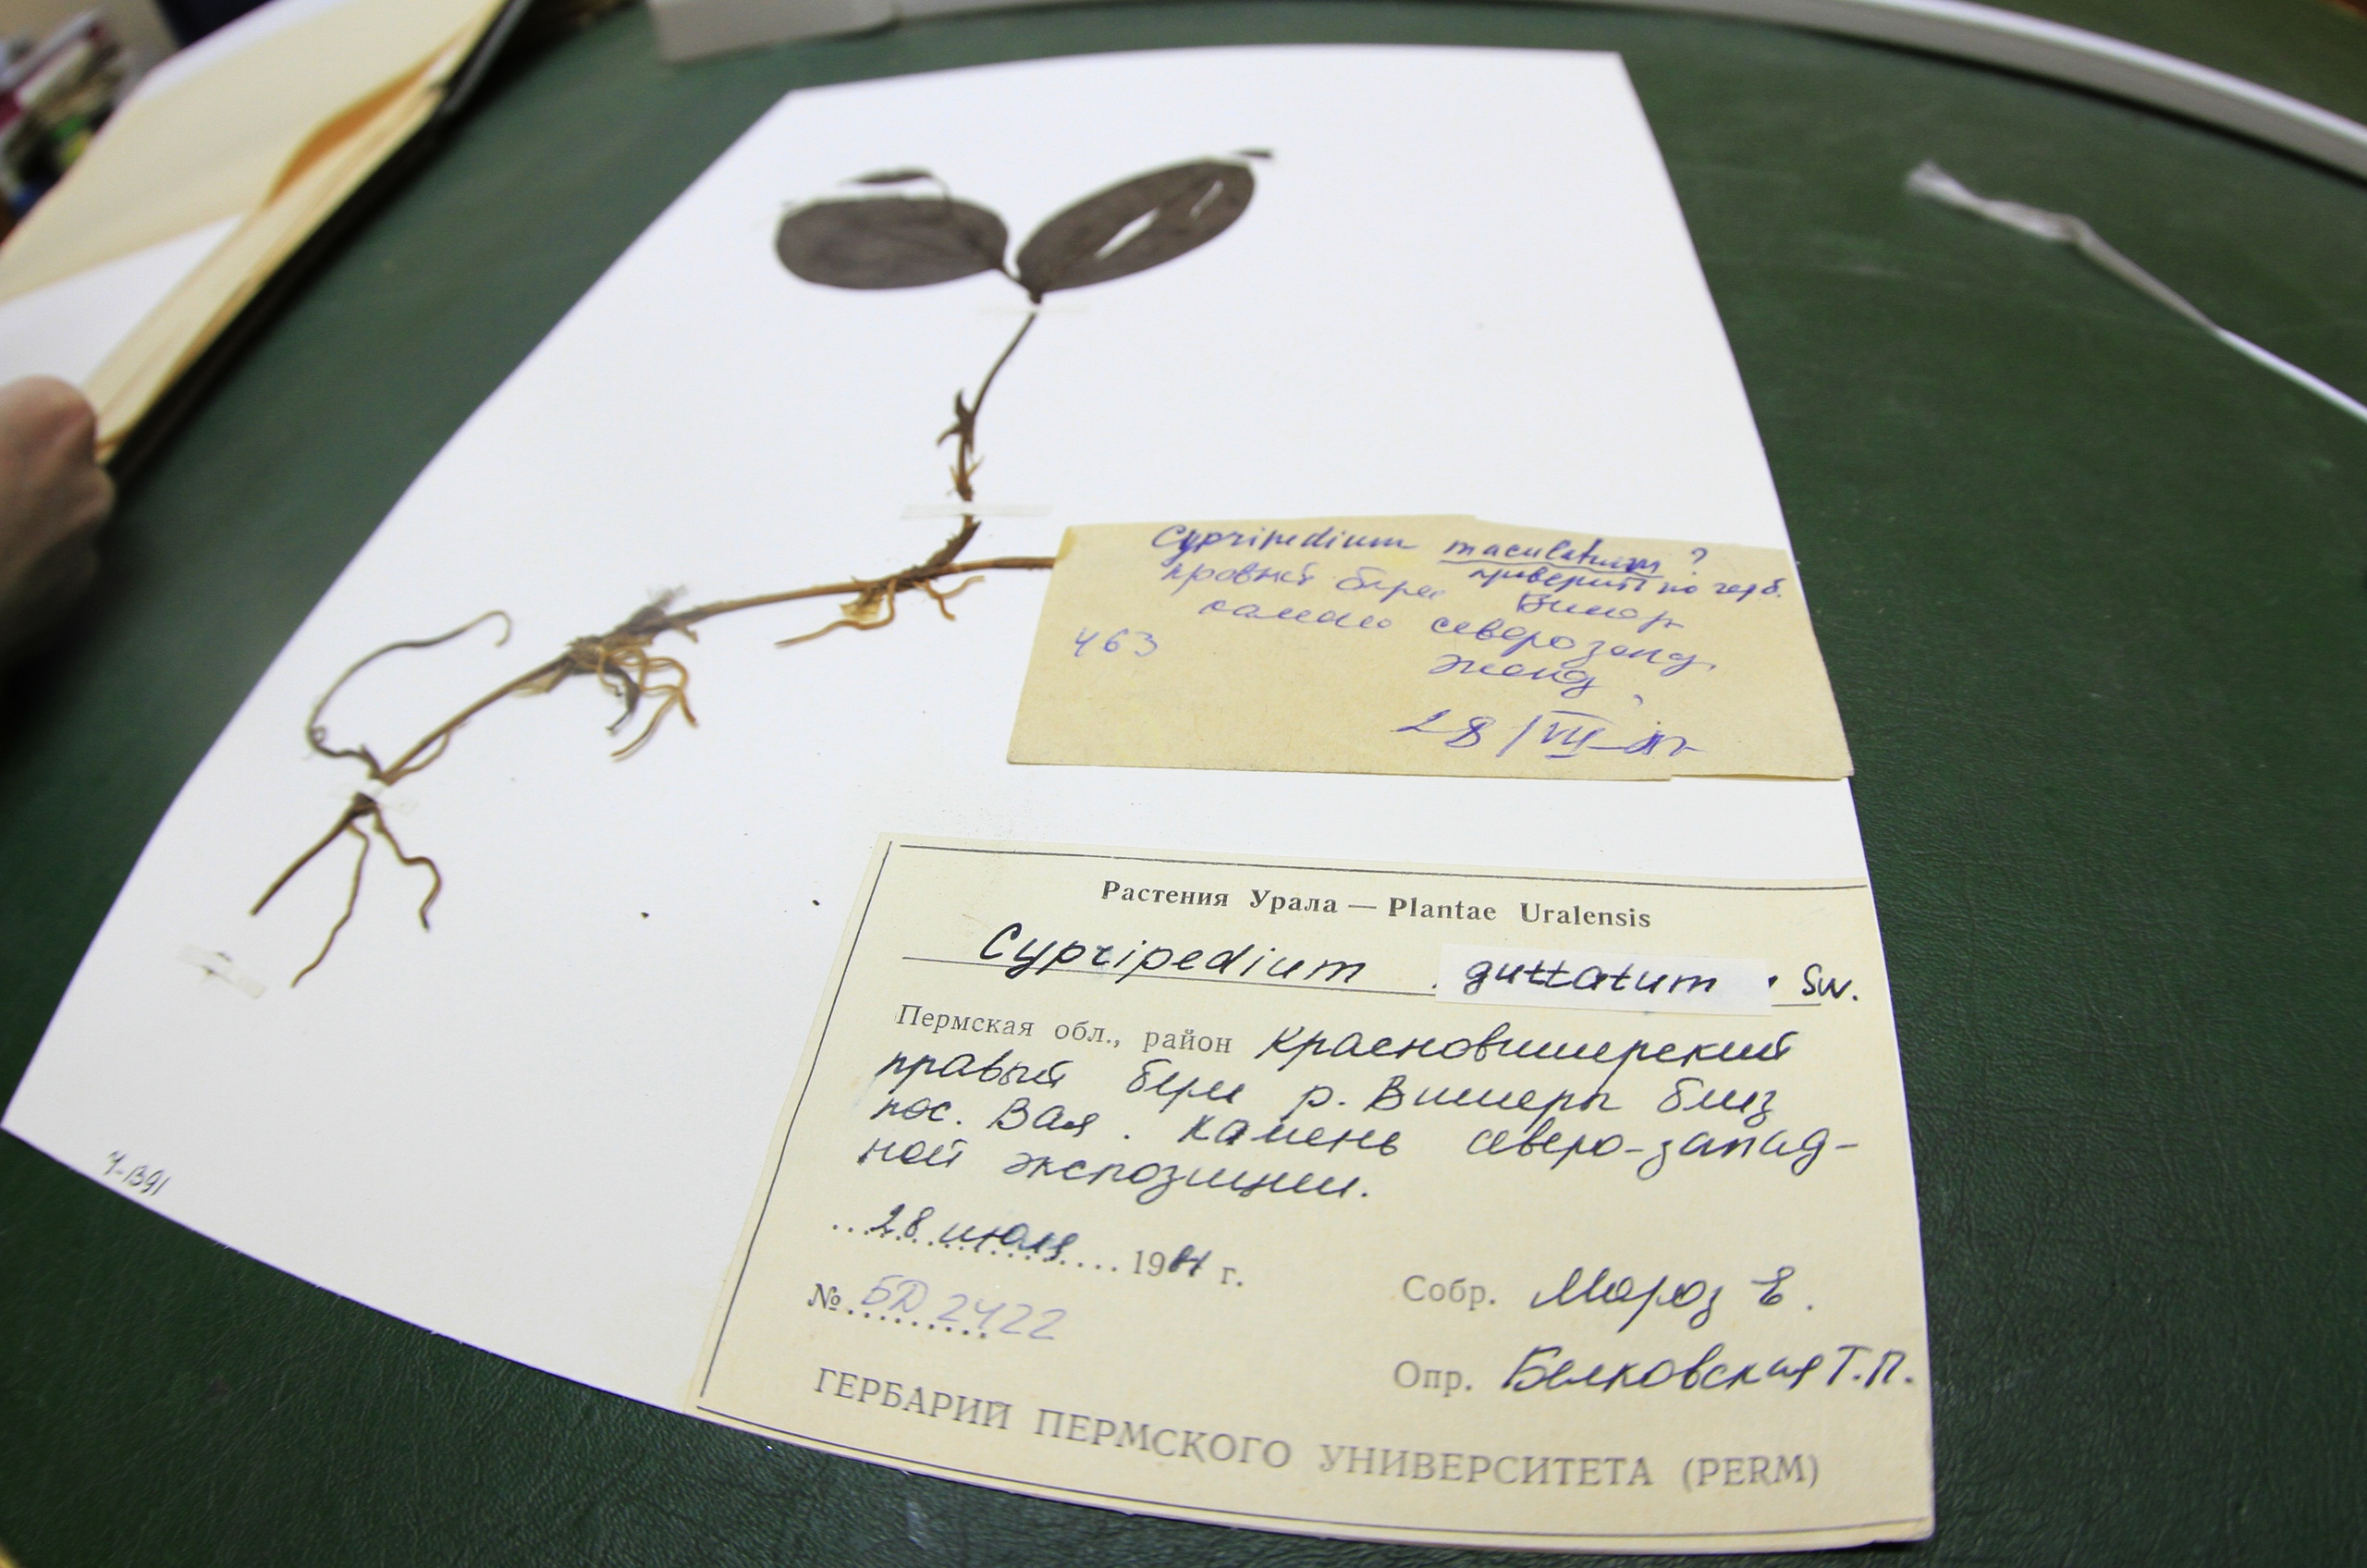 Cypripedium maculatum ?
правый берег проверить по герб.
Вишер
камень северозапад.
463
экспоз.
28/VII
Растения Урала — Plantae Uralensis
Cypripedium guttatum Sw.
Пермская обл., район Красновишерский
правый берег р. Вишеры близ
пос. Вая. Камень северо-запад-
ной экспозиции.
28 июля 1981 г.
№ БД 2422
Собр. Мороз Е.
Опр. Белковская Т.П.
ГЕРБАРИЙ ПЕРМСКОГО УНИВЕРСИТЕТА (PERM)
Ч-1391